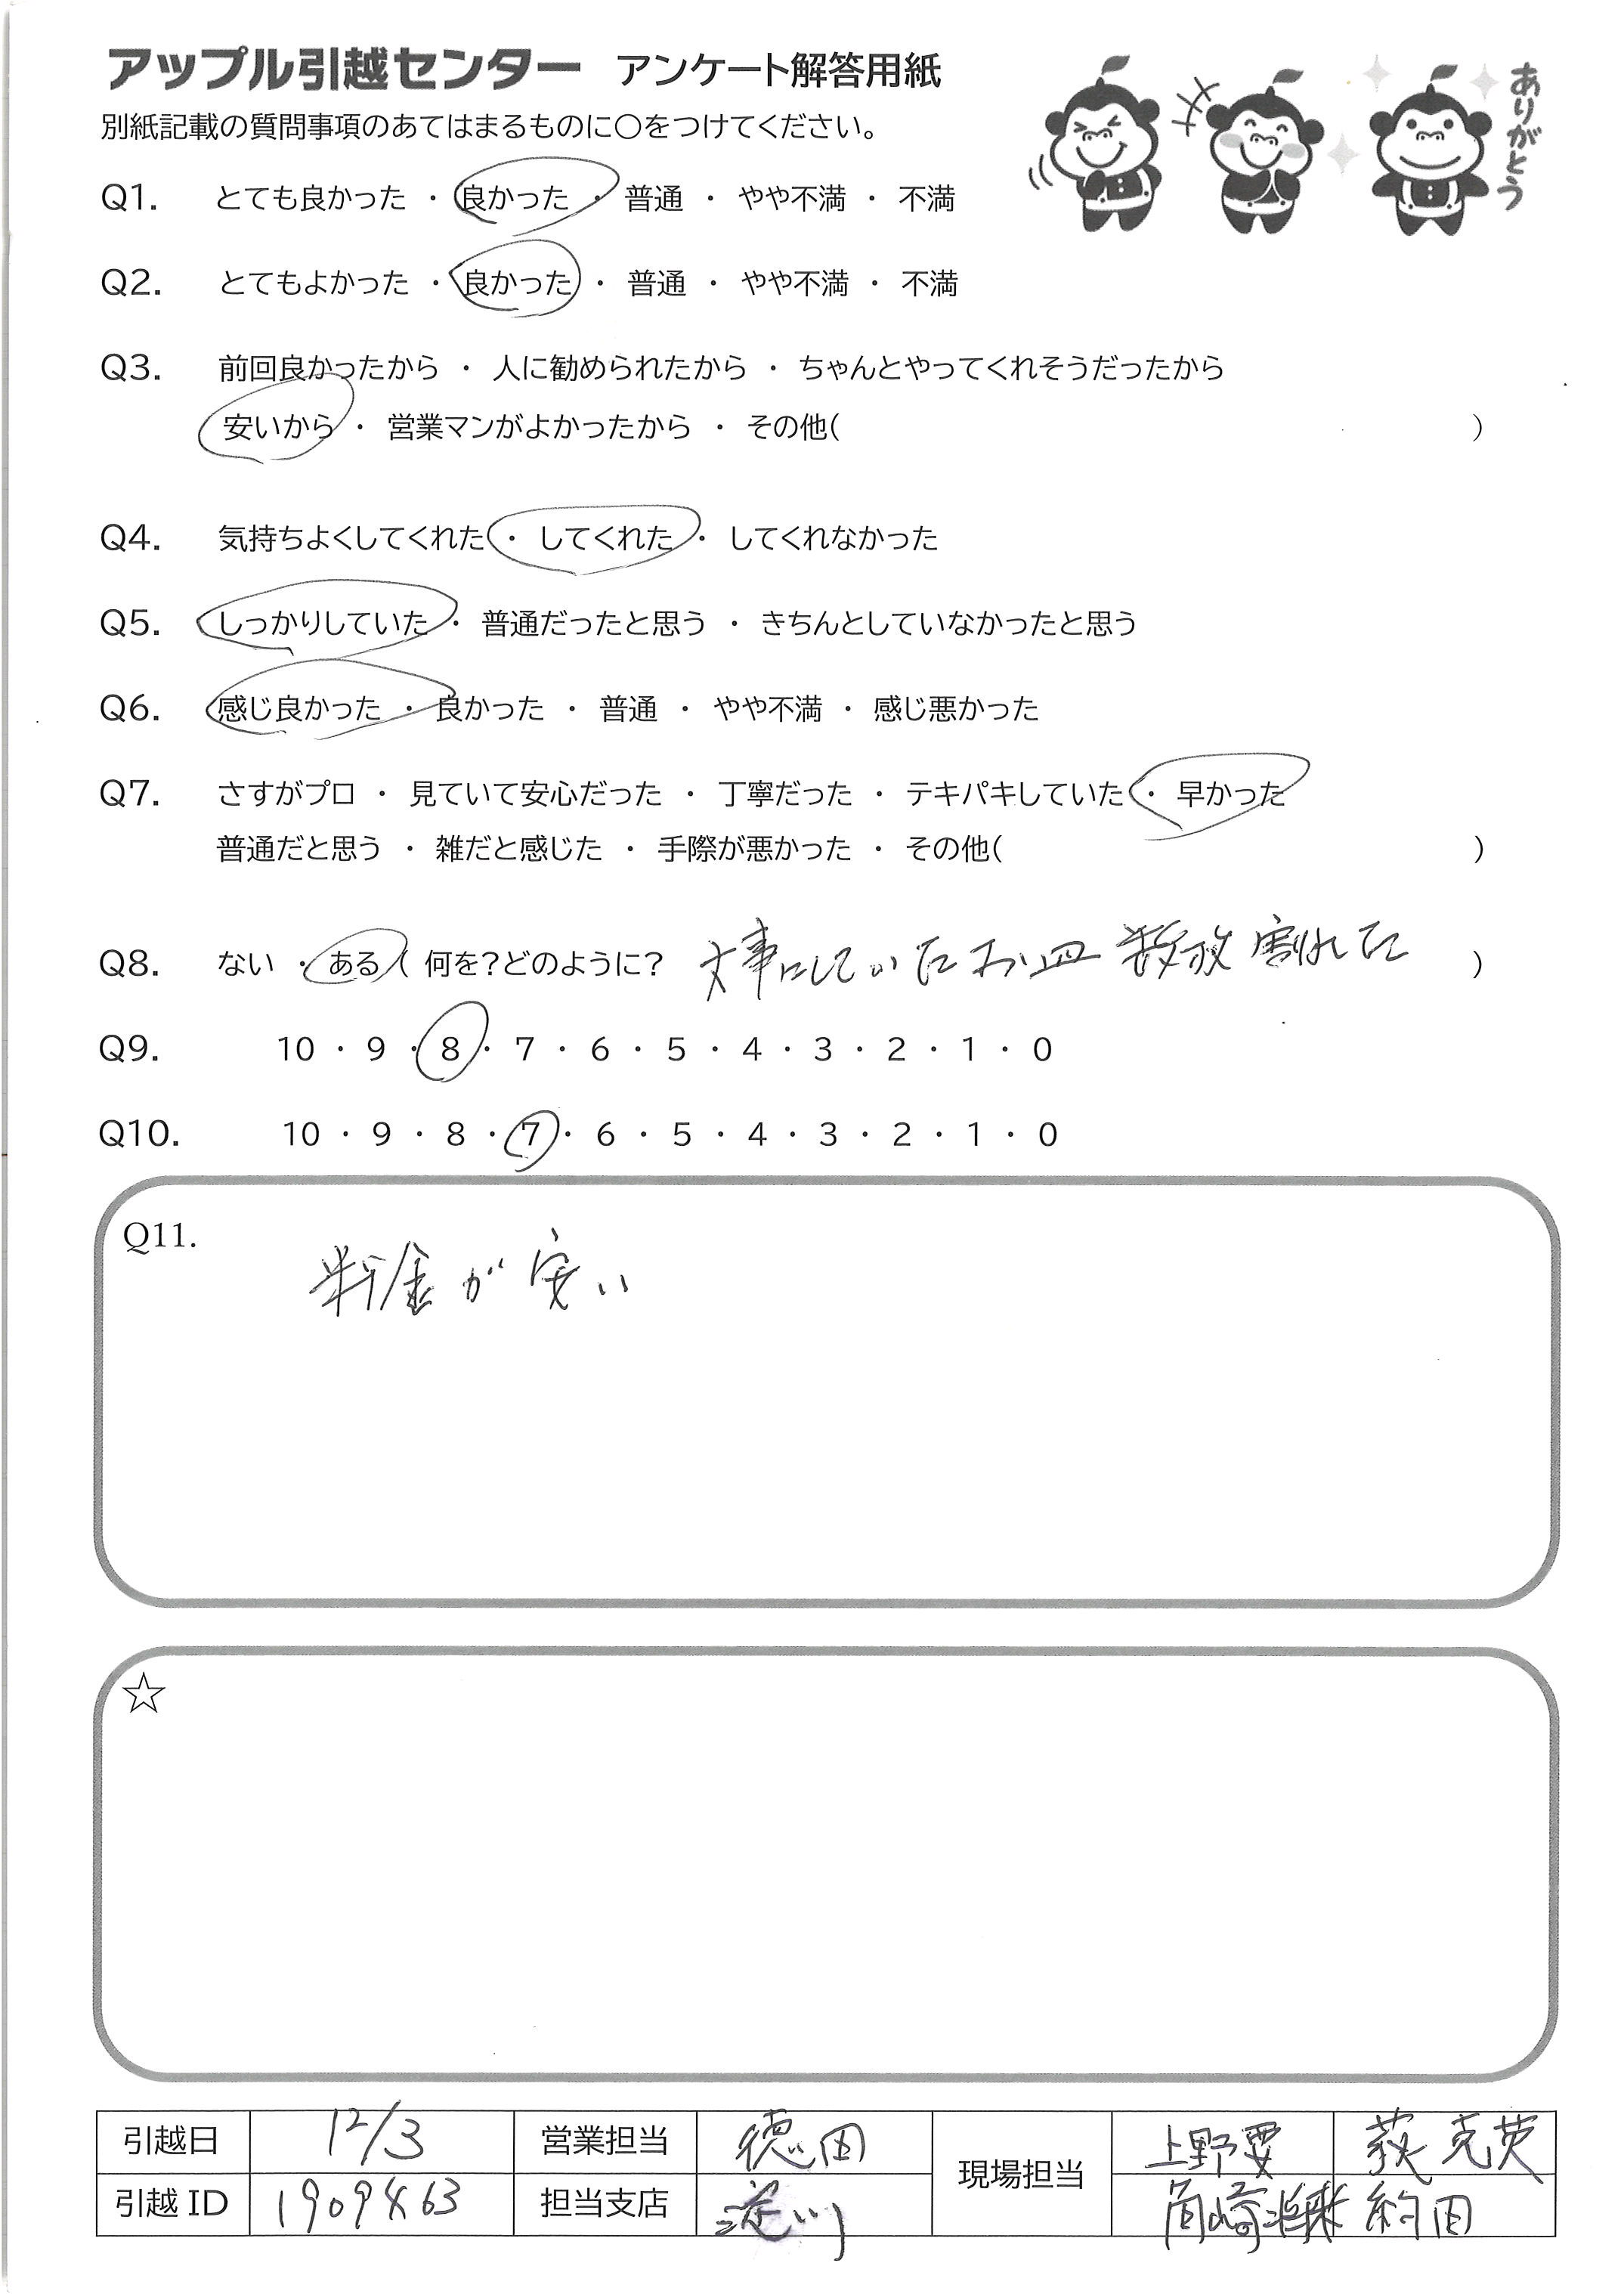 アップル引越センター アンケート解答用紙
ありがとう
別紙記載の質問事項のあてはまるものに○をつけてください。
Q1. とても良かった ・ 良かった ・ 普通 ・ やや不満 ・ 不満
Q2. とてもよかった ・ 良かった ・ 普通 ・ やや不満 ・ 不満
Q3. 前回良かったから ・ 人に勧められたから ・ ちゃんとやってくれそうだったから
安いから ・ 営業マンがよかったから ・ その他( )
Q4. 気持ちよくしてくれた ・ してくれた ・ してくれなかった
Q5. しっかりしていた ・ 普通だったと思う ・ きちんとしていなかったと思う
Q6. 感じ良かった ・ 良かった ・ 普通 ・ やや不満 ・ 感じ悪かった
Q7. さすがプロ ・ 見ていて安心だった ・ 丁寧だった ・ テキパキしていた ・ 早かった
普通だと思う ・ 雑だと感じた ・ 手際が悪かった ・ その他( )
Q8. ない ・ ある ( 何を?どのように? 大事にしていたお皿 数枚 割れた )
Q9. 10 ・ 9 ・ 8 ・ 7 ・ 6 ・ 5 ・ 4 ・ 3 ・ 2 ・ 1 ・ 0
Q10. 10 ・ 9 ・ 8 ・ 7 ・ 6 ・ 5 ・ 4 ・ 3 ・ 2 ・ 1 ・ 0
Q11. 料金が安い
☆
引越日 12/3 営業担当 徳田 現場担当 上野要 萩 克英
引越ID 1909463 担当支店 淀川 約田